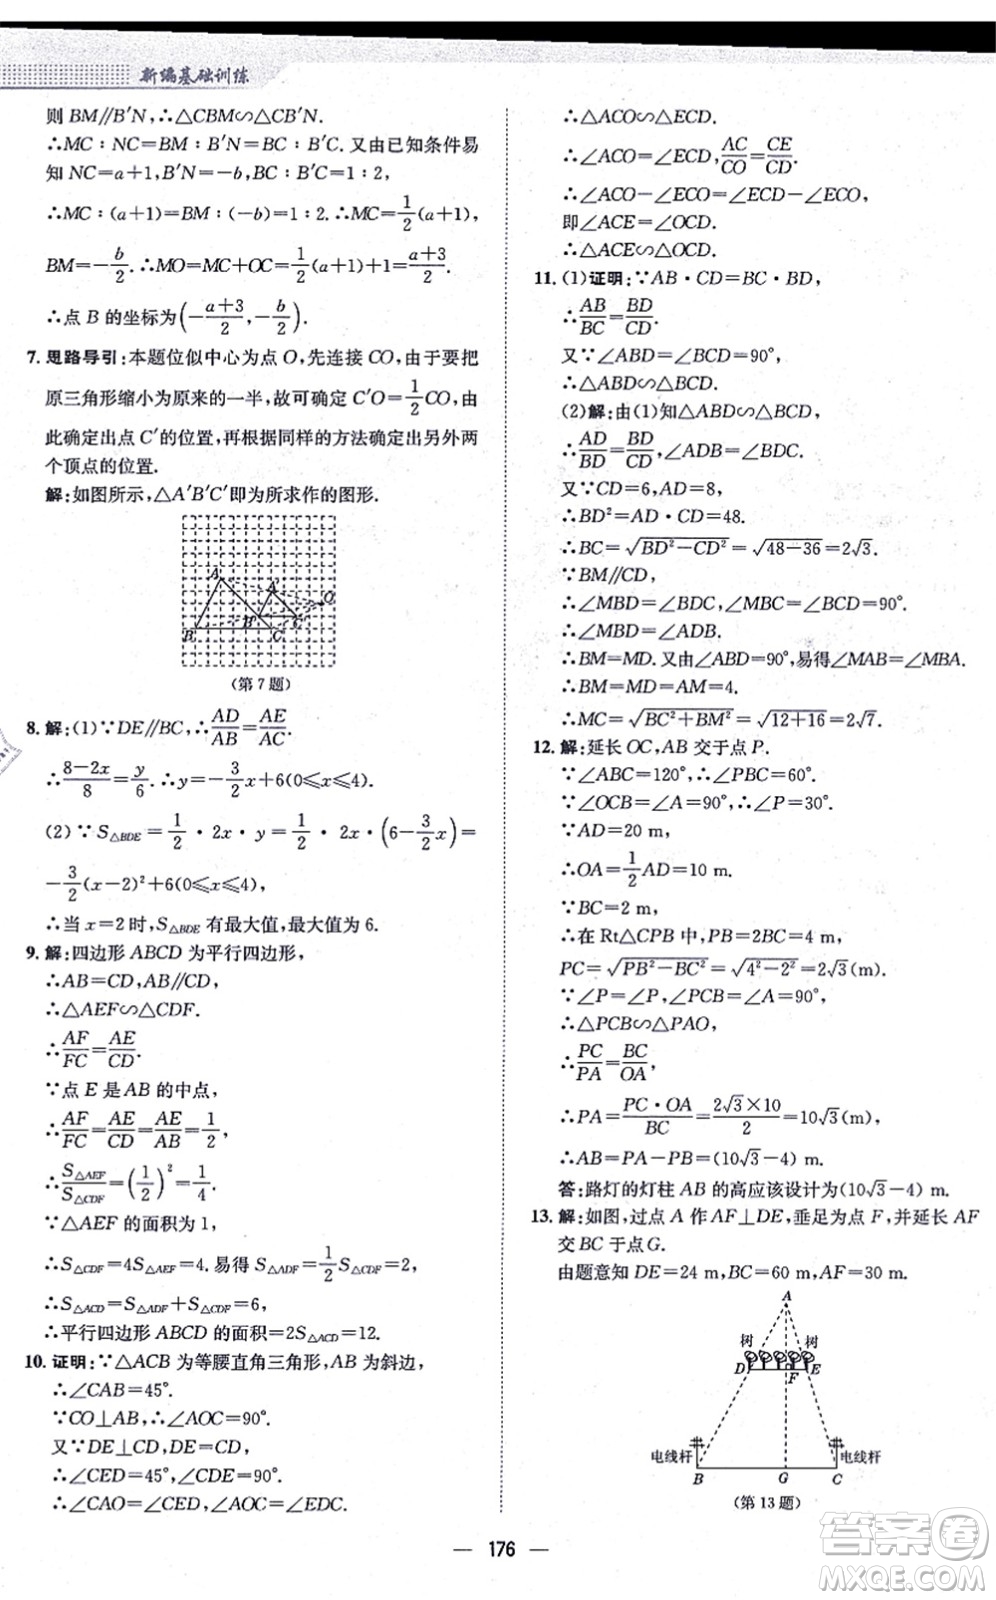 新编基础训练
则 BM∥B′N,∴△CBM∽△CB′N.
∴MC∶NC=BM∶B′N=BC∶B′C. 又由已知条件易
知 NC=a+1,B′N=-b,BC∶B′C=1∶2,
∴MC∶(a+1)=BM∶(-b)=1∶2.∴MC=1/2(a+1),
BM=-b/2.∴MO=MC+OC=1/2(a+1)+1=(a+3)/2.
∴点 B 的坐标为(-(a+3)/2,-b/2).
7. 思路导引:本题位似中心为点 O,先连接 CO,由于要把
原三角形缩小为原来的一半,故可确定 C′O=1/2CO,由
此确定出点 C′的位置,再根据同样的方法确定另外两
个顶点的位置.
解:如图所示,△A′B′C′即为所求作的图形.
A A′ O
B B′ C C′
(第 7 题)
8. 解:(1)∵DE∥BC,∴AD/AB=AE/AC.
∴(8-2x)/8=y/6.∴y=-3/2x+6(0≤x≤4).
(2)∵S△BDE=1/2·2x·y=1/2·2x·(6-3/2x)=
-3/2(x-2)²+6(0≤x≤4),
∴当 x=2 时,S△BDE有最大值,最大值为 6.
9. 解:四边形 ABCD 为平行四边形,
∴AB=CD,AB∥CD.
∴△AEF∽△CDF.
∴AF/FC=AE/CD.
∵点 E 是 AB 的中点,
∴AF/FC=AE/CD=AE/AB=1/2,
∴S△AEF/S△CDF=(1/2)²=1/4.
∵△AEF 的面积为 1,
∴S△CDF=4S△AEF=4. 易得 S△ADF=1/2S△CDF=2,
∴S△ACD=S△ADF+S△CDF=6,
∴平行四边形 ABCD 的面积=2S△ACD=12.
10. 证明:∵△ACB 为等腰直角三角形,AB 为斜边,
∴∠CAB=45°.
∵CO⊥AB,∴∠AOC=90°.
又∵DE⊥CD,DE=CD,
∴∠CED=45°,∠CDE=90°.
∴∠CAO=∠CED,∠AOC=∠EDC.
∴△ACO∽△ECD.
∴∠ACO=∠ECD,AC/CO=CE/CD.
∴∠ACO-∠ECO=∠ECD-∠ECO,
即∠ACE=∠OCD.
∴△ACE∽△OCD.
11. (1)证明:∵AB·CD=BC·BD,
∴AB/BC=BD/CD.
又∵∠ABD=∠BCD=90°,
∴△ABD∽△BCD.
(2)解:由(1)知△ABD∽△BCD,
∴AD/BD=BD/CD,∠ADB=∠BDC.
又∵CD=6,AD=8,
∴BD²=AD·CD=48.
∴BC=√(BD²-CD²)=√(48-36)=2√3.
∵BM∥CD,
∴∠MBD=∠BDC,∠MBC=∠BCD=90°.
∴∠MBD=∠ADB.
∴BM=MD. 又由∠ABD=90°,易得∠MAB=∠MBA.
∴BM=MD=AM=4.
∴MC=√(BC²+BM²)=√(12+16)=2√7.
12. 解:延长 OC,AB 交于点 P.
∵∠ABC=120°,∴∠PBC=60°.
∵∠OCB=∠A=90°,∴∠P=30°.
∵AD=20 m,
∴OA=1/2AD=10 m.
∵BC=2 m,
∴在 Rt△CPB 中,PB=2BC=4 m,
PC=√(PB²-BC²)=√(4²-2²)=2√3(m).
∵∠P=∠P,∠PCB=∠A=90°,
∴△PCB∽△PAO,
∴PC/PA=BC/OA,
∴PA=PC·OA/BC=2√3×10/2=10√3(m).
∴AB=PA-PB=(10√3-4) m.
答:路灯的灯柱 AB 的高应该设计为(10√3-4) m.
13. 解:如图,过点 A 作 AF⊥DE,垂足为点 F,并延长 AF
交 BC 于点 G.
由题意知 DE=24 m,BC=60 m,AF=30 m.
A
树 树
D F E
电线杆 电线杆
B G C
(第 13 题)
— 176 —
答案圈
MXQE.COM